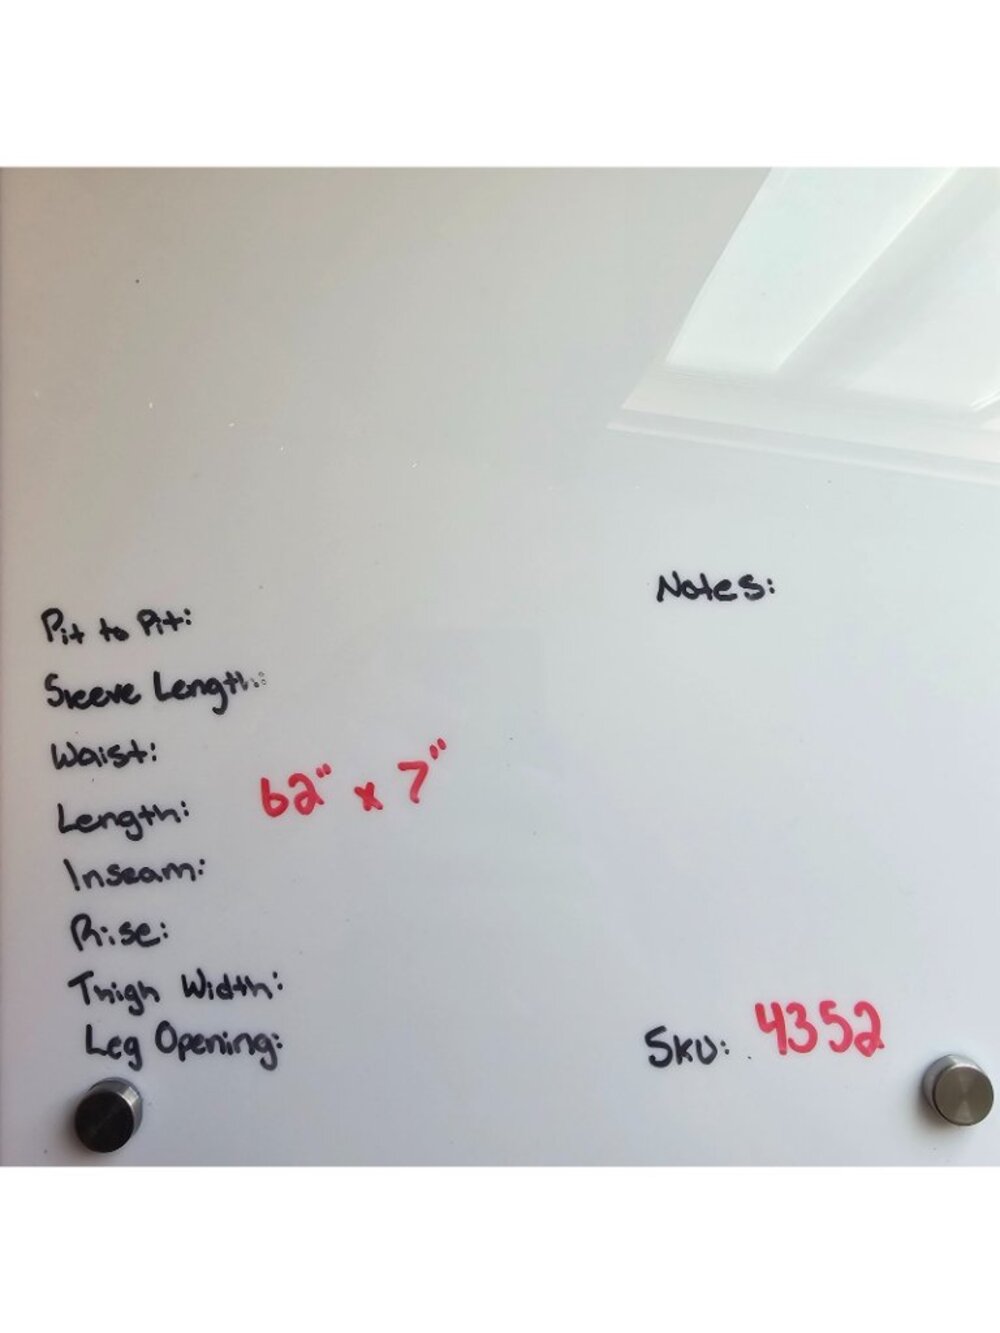 Pit to Pit:
Sleeve Length:
Waist:
Length: 62" x 7"
Inseam:
Rise:
Thigh Width:
Leg Opening:
Notes:
SKU: 4352